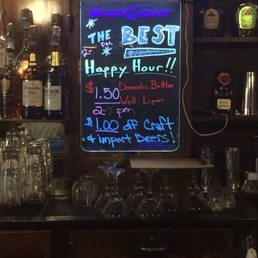 Bud Light
THE
BEST
Happy Hour!!
$1.50 Domestic Bottles
Well Liquor
2-7 pm
$1.00 off Craft
& import Beers!